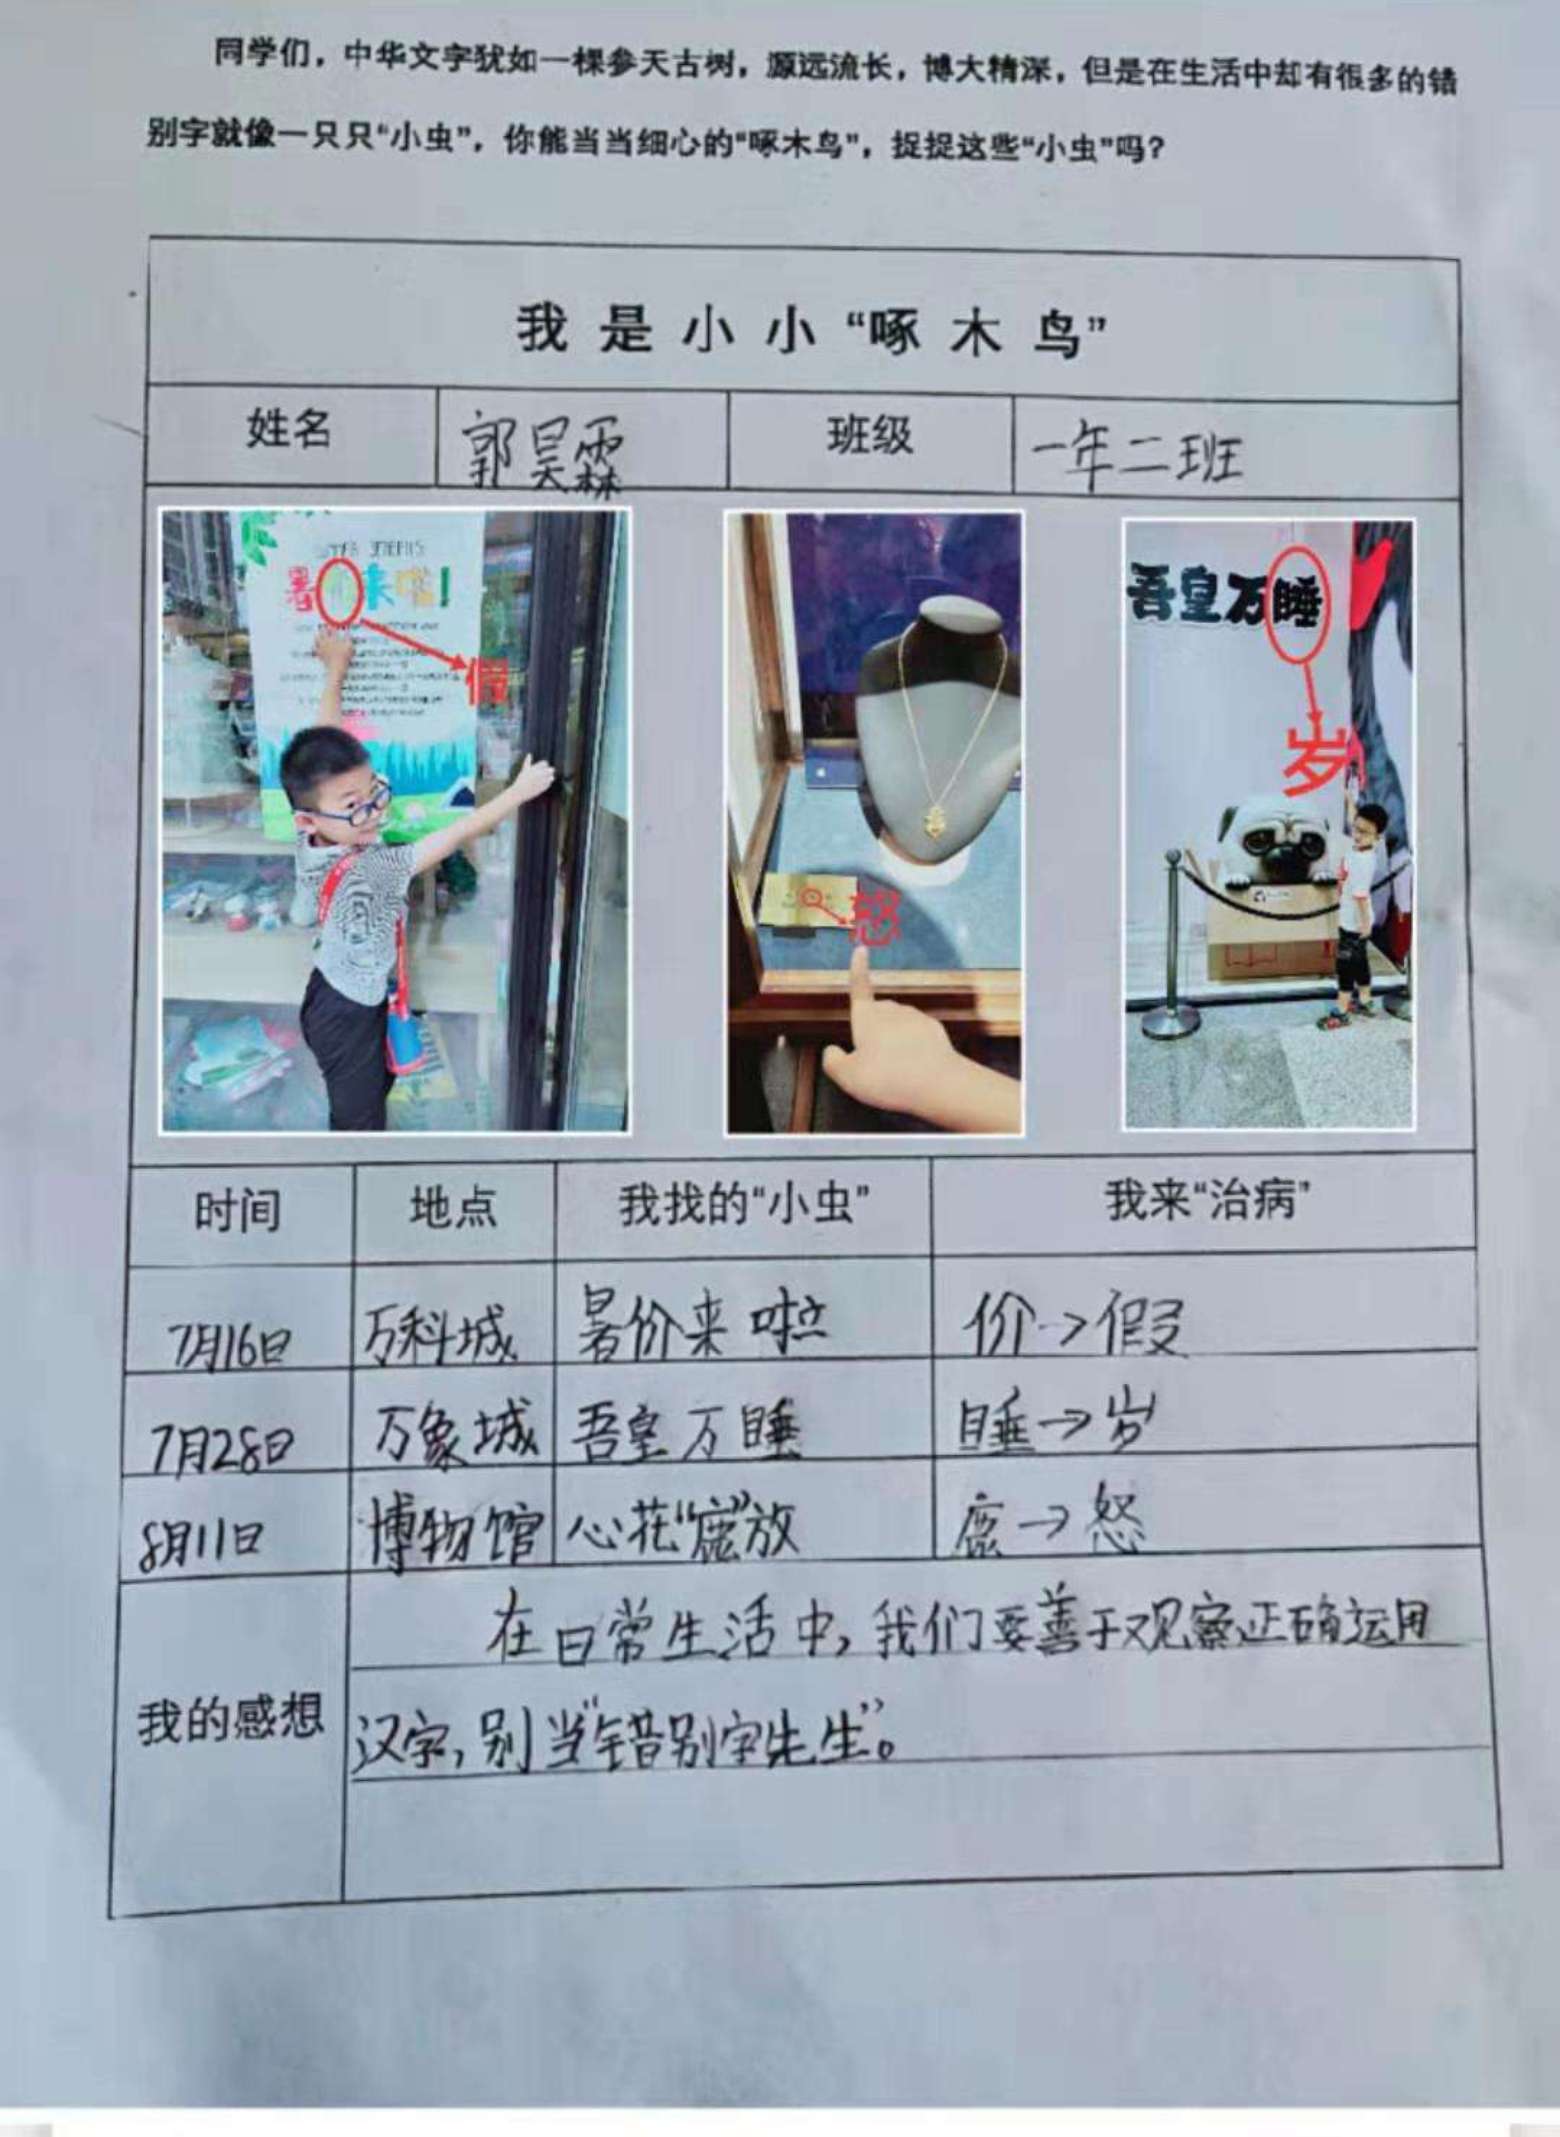 同学们，中华文字犹如一棵参天古树，源远流长，博大精深，但是在生活中却有很多的错
别字就像一只只“小虫”，你能当当细心的“啄木鸟”，捉捉这些“小虫”吗？
我是小小“啄木鸟”
姓名 郭昊霖 班级 一年二班
暑 来啦！
假
怒
吾皇万睡
岁
时间 地点 我找的“小虫” 我来“治病”
7月16日 万科城 暑价来啦 价→假
7月28日 万象城 吾皇万睡 睡→岁
8月11日 博物馆 心花“鹿”放 鹿→怒
我的感想
在日常生活中，我们要善于观察正确运用
汉字，别当“错别字先生”。